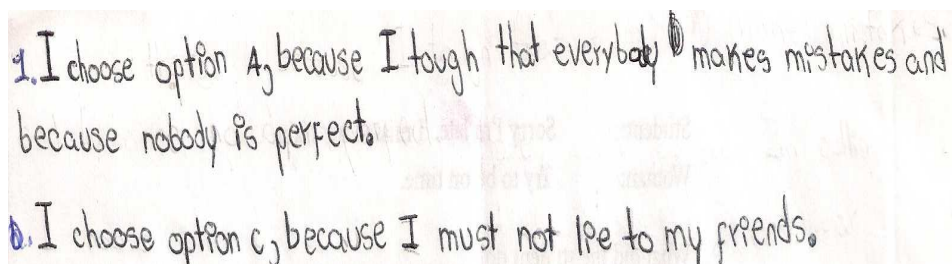 1. I choose option A, because I tough that everybody makes mistakes and
because nobody is perfect.
b. I choose option C, because I must not lie to my friends.